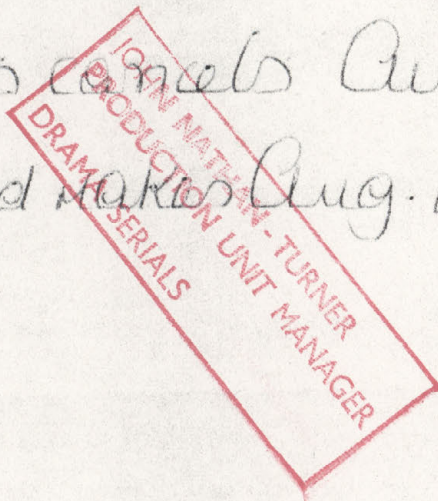 cancels Au
makes Aug.
JOHN NATHAN-TURNER
PRODUCTION UNIT MANAGER
DRAMA SERIALS